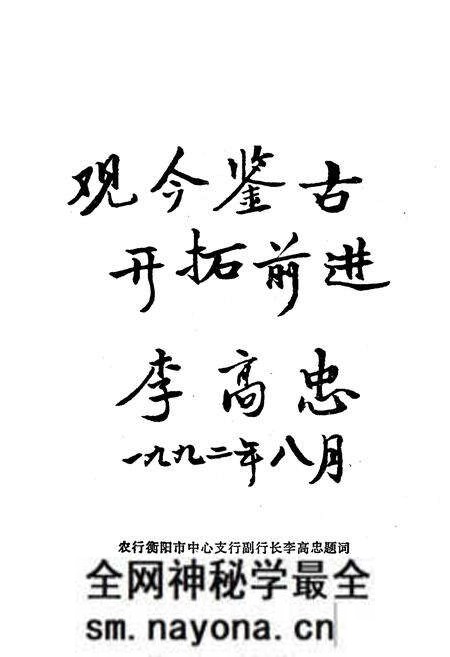 观今鉴古
开拓前进
李高忠
一九九二年八月
农行衡阳市中心支行副行长李高忠题词
全网神秘学最全
sm.nayona.cn